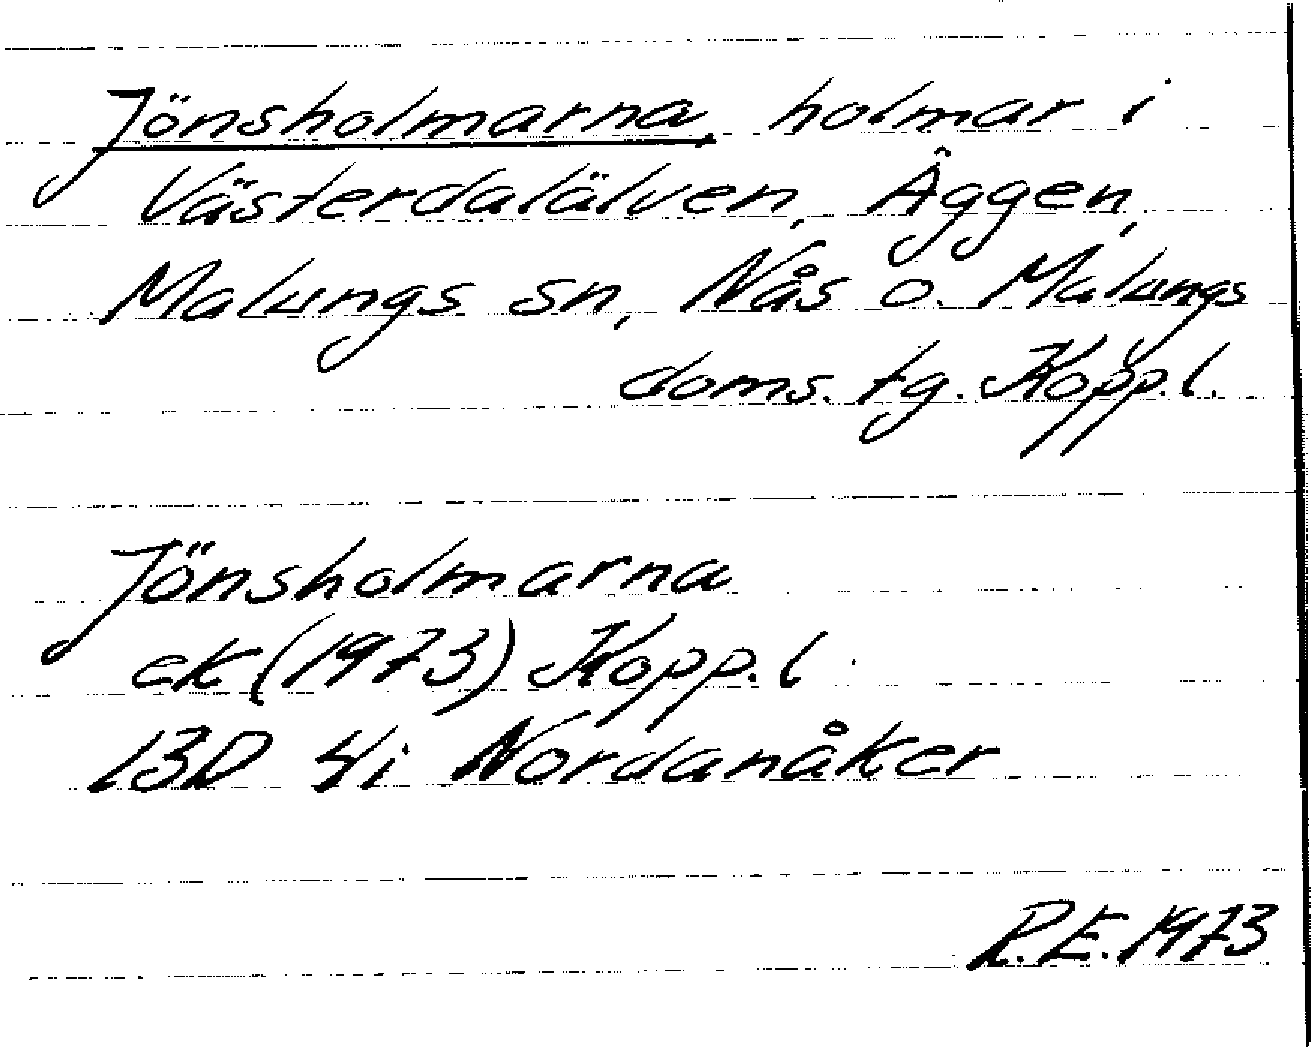 Jönsholmarna, holmar i
Västerdalälven, Åggen,
Malungs sn, Nås o. Malungs
doms. tg. Kopp. l.
Jönsholmarna
ek (1973) Kopp. l.
13D 4i Nordanåker
R.E. 1973